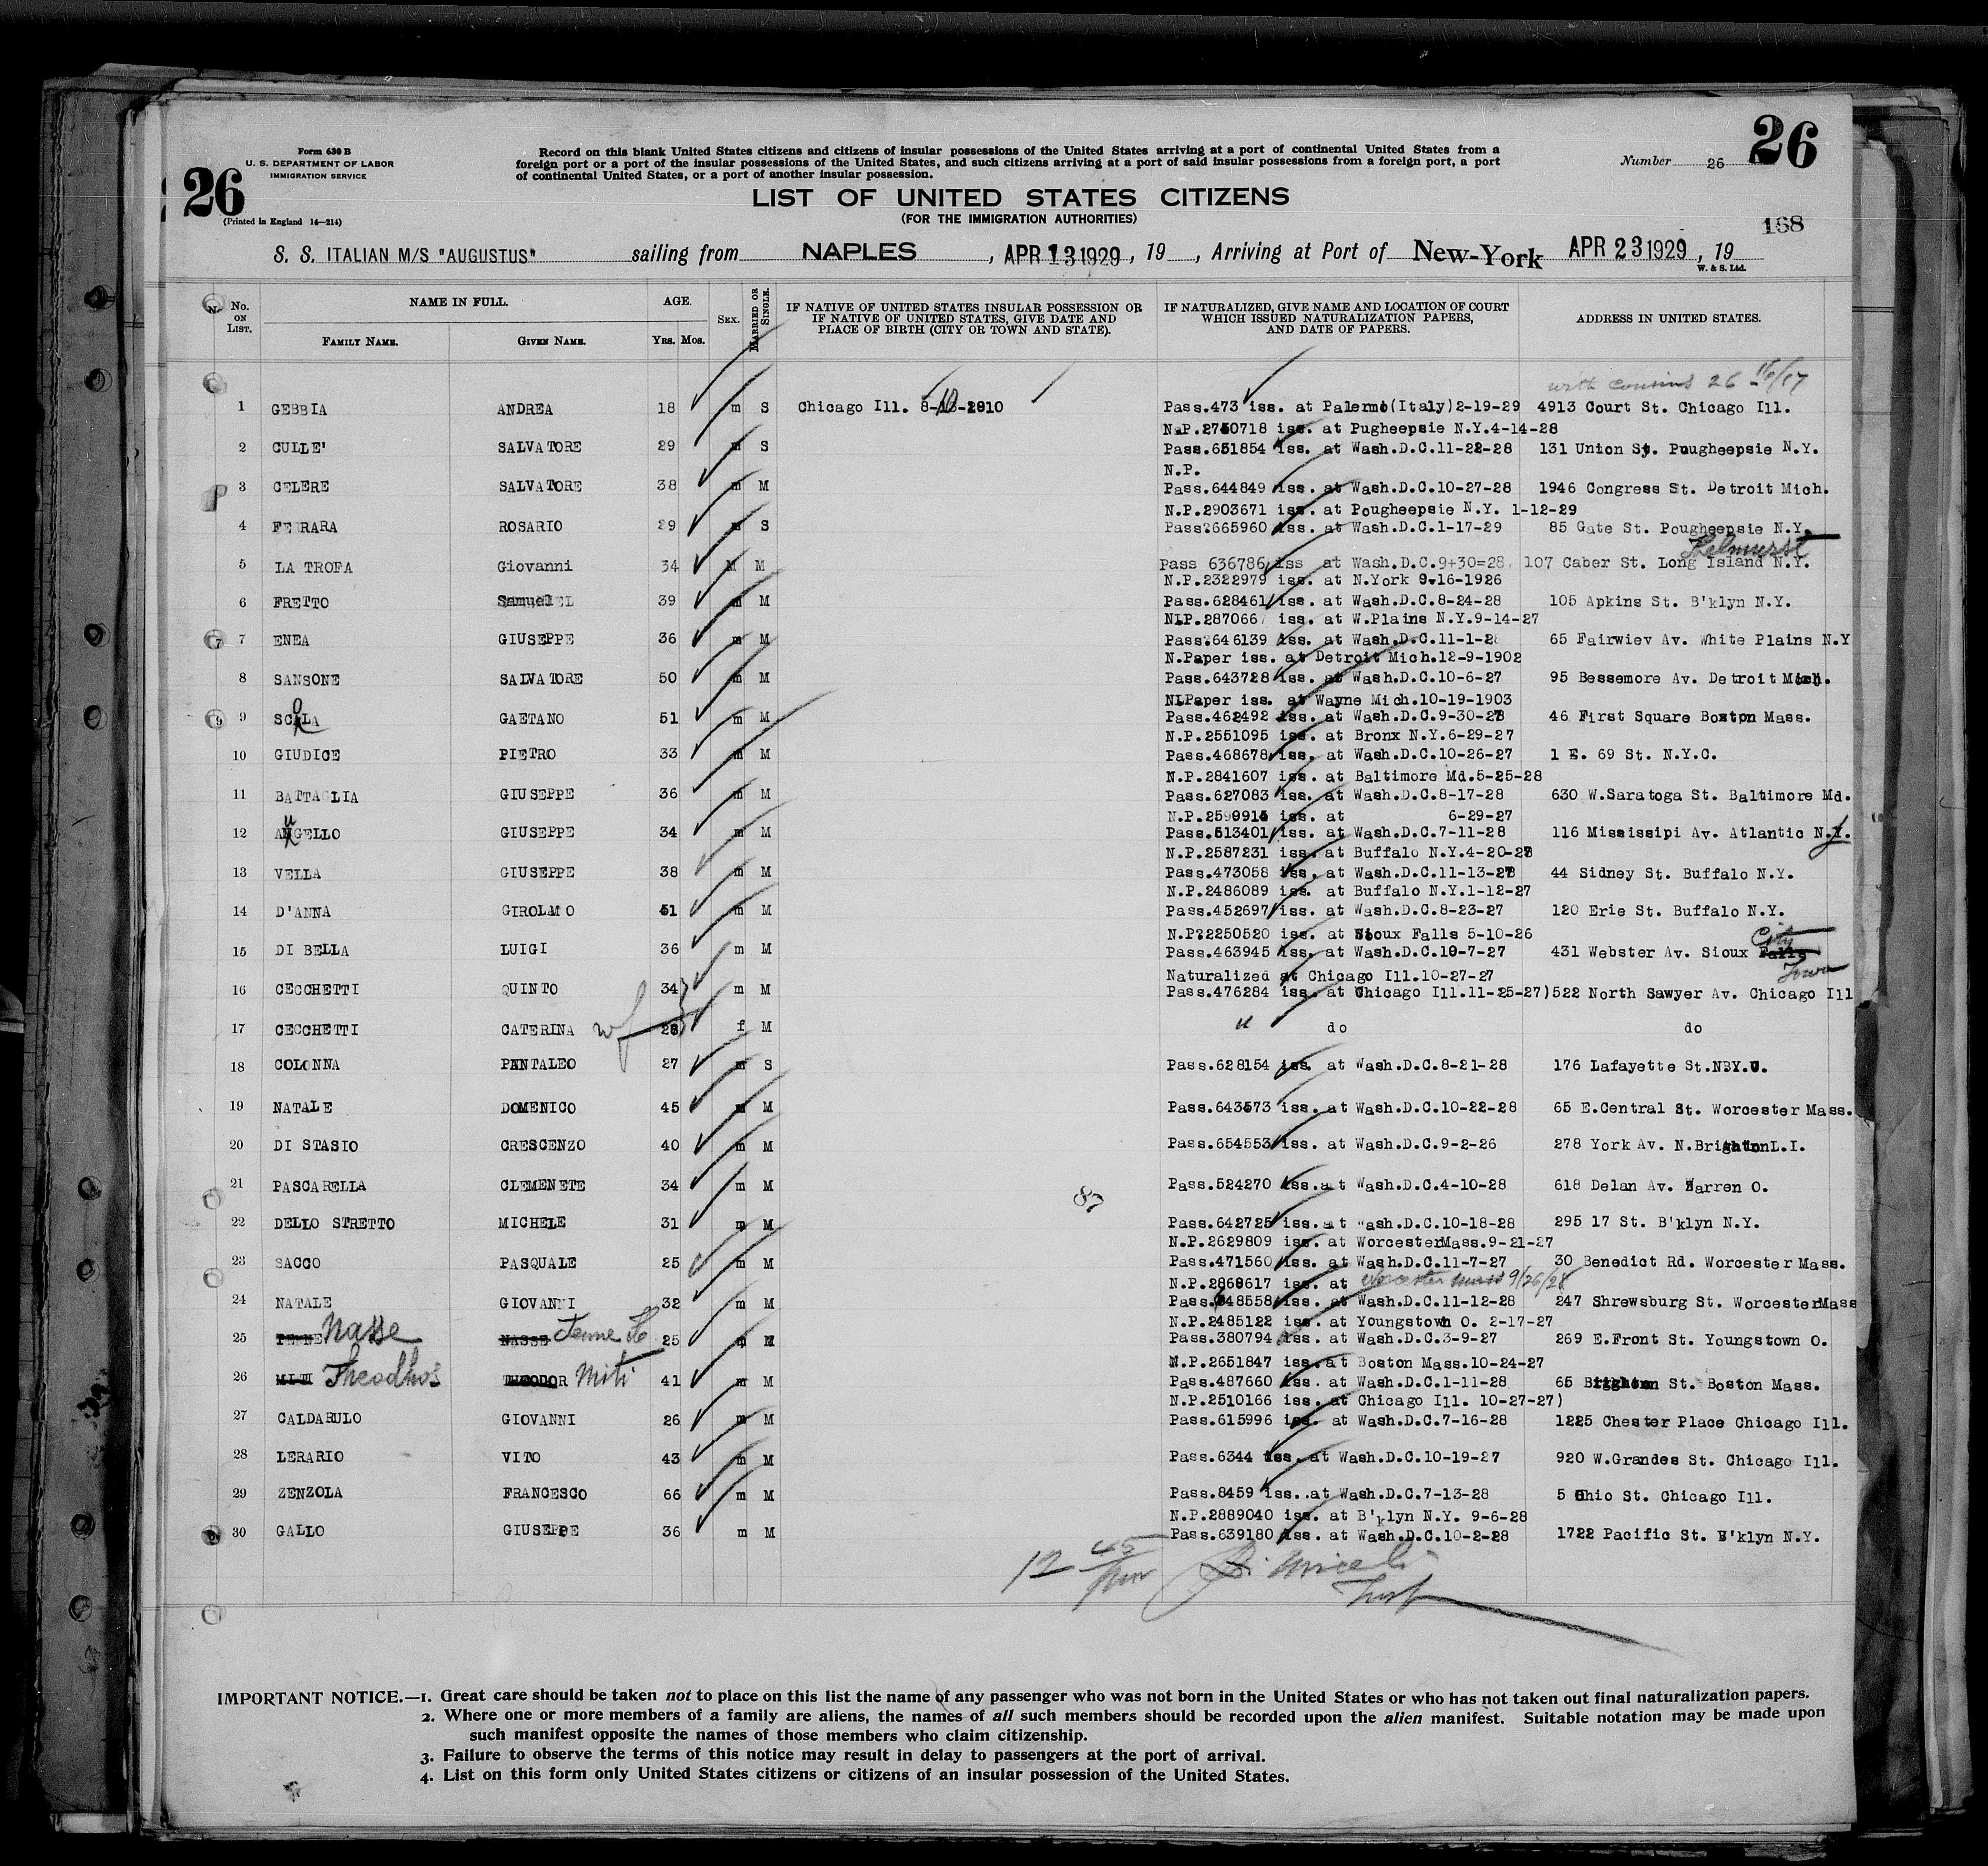 Form 630 B
U. S. DEPARTMENT OF LABOR
IMMIGRATION SERVICE
26
(Printed in England 14—214)
Record on this blank United States citizens and citizens of insular possessions of the United States arriving at a port of continental United States from a
foreign port or a port of the insular possessions of the United States, and such citizens arriving at a port of said insular possessions from a foreign port, a port
of continental United States, or a port of another insular possession.
LIST OF UNITED STATES CITIZENS
(FOR THE IMMIGRATION AUTHORITIES)
Number 26
26
168
S. S. ITALIAN M/S "AUGUSTUS" sailing from NAPLES, APR 13 1929, 19 , Arriving at Port of New-York APR 23 1929, 19
W. & S. Ltd.
No. ON LIST. NAME IN FULL. FAMILY NAME. GIVEN NAME. AGE. YRS. MOS. SEX. MARRIED OR SINGLE. IF NATIVE OF UNITED STATES INSULAR POSSESSION OR IF NATIVE OF UNITED STATES, GIVE DATE AND PLACE OF BIRTH (CITY OR TOWN AND STATE). IF NATURALIZED, GIVE NAME AND LOCATION OF COURT WHICH ISSUED NATURALIZATION PAPERS, AND DATE OF PAPERS. ADDRESS IN UNITED STATES.
with cousins 26
1 GEBBIA ANDREA 18 m S Chicago Ill. 8-10-1910 Pass.473 iss. at Palermo(Italy)2-19-29 4913 Court St. Chicago Ill.
N.P.2750718 iss. at Pugheepsie N.Y.4-14-28
2 CULLE' SALVATORE 29 m S Pass.651854 iss. at Wash.D.C.11-22-28 131 Union St. Pougheepsie N.Y.
N.P.
3 CELERE SALVATORE 38 m M Pass.644849 iss. at Wash.D.C.10-27-28 1946 Congress St. Detroit Mich.
N.P.2903671 iss. at Pougheepsie N.Y. 1-12-29
4 FERRARA ROSARIO 29 m S Pass.665960 iss. at Wash.D.C.1-17-29 85 Gate St. Pougheepsie N.Y.
5 LA TROFA Giovanni 34 M M Pass 636786 iss at Wash.D.C.9+30=28 107 Caber St. Long Island N.Y.
N.P.2322979 iss. at N.York 9-16-1926
6 FRETTO Samuel 39 m M Pass.628461 iss. at Wash.D.C.8-24-28 105 Apkins St. B'klyn N.Y.
N.P.287066 iss. at W.Plains N.Y.9-14-27
7 ENEA GIUSEPPE 36 m M Pass.646139 iss. at Wash.D.C.11-1-2 65 Fairwiev Av. White Plains N.Y
N.Paper iss. at Detroit Mich.12-9-1902
8 SANSONE SALVATORE 50 m M Pass.643728 iss. at Wash.D.C.10-6-27 95 Bessemore Av. Detroit Mich.
N.Paper iss. at Wayne Mich.10-19-1903
9 GAETANO 51 m M Pass.462492 iss. at Wash.D.C.9-30-27 46 First Square Boston Mass.
N.P.2551095 iss. at Bronx N.Y.6-29-27
10 GIUDICE PIETRO 33 m M Pass.468678 iss. at Wash.D.C.10-26-27 1 E. 69 St. N.Y.C.
N.P.2841607 iss. at Baltimore Md.5-25-28
11 BATTAGLIA GIUSEPPE 36 m M Pass.627083 iss. at Wash.D.C.8-17-28 630 W.Saratoga St. Baltimore Md.
N.P.2599915 iss. at 6-29-27
12 AUGELLO GIUSEPPE 34 m M Pass.513401 iss. at Wash.D.C.7-11-28 116 Mississipi Av. Atlantic N.J.
N.P.2587231 iss. at Buffalo N.Y.4-20-27
13 VELLA GIUSEPPE 38 m M Pass.473058 iss. at Wash.D.C.11-13-27 44 Sidney St. Buffalo N.Y.
N.P.2486089 iss. at Buffalo N.Y.1-12-27
14 D'ANNA GIROLAMO 51 m M Pass.452697 iss. at Wash.D.C.8-23-27 120 Erie St. Buffalo N.Y.
N.P.2250520 iss. at Sioux Falls 5-10-26
15 DI BELLA LUIGI 36 m M Pass.463945 iss. at Wash.D.C.10-7-27 431 Webster Av. Sioux Falls City Iowa
Naturalized at Chicago Ill.10-27-27
16 CECCHETTI QUINTO 34 m M Pass.476284 iss. at Chicago Ill.11-25-27)522 North Sawyer Av. Chicago Ill
17 CECCHETTI CATERINA wf 28 f M " do do
18 COLONNA PANTALEO 27 m S Pass.628154 iss. at Wash.D.C.8-21-28 176 Lafayette St.N.Y.C.
19 NATALE DOMENICO 45 m M Pass.643573 iss. at Wash.D.C.10-22-28 65 E.Central St. Worcester Mass.
20 DI STASIO CRESCENZO 40 m M Pass.654553 iss. at Wash.D.C.9-2-26 278 York Av. N.Brighton L.I.
21 PASCARELLA CLEMENETE 34 m M Pass.524270 iss.at Wash.D.C.4-10-28 618 Delan Av. Warren O.
22 DELLO STRETTO MICHELE 31 m M Pass.642725 iss.at Wash.D.C.10-18-28 295 17 St. B'klyn N.Y.
N.P.2629809 iss. at WorcesterMass.9-21-27
23 SACCO PASQUALE 25 m M Pass.471560 iss. at Wash.D.C.11-7-27 30 Benedict Rd. Worcester Mass.
N.P.2868617 iss. at Worcester Mass 9/26/28
24 NATALE GIOVANNI 32 m M Pass.648558 iss. at Wash.D.C.11-12-28 247 Shrewsburg St. WorcesterMass
N.P.2485122 iss. at Youngstown O. 2-17-27
25 Nasse NASSE 25 m M Pass.380794 iss. at Wash.D.C.3-9-27 269 E.Front St. Youngstown O.
N.P.2651847 iss.at Boston Mass.10-24-27
26 MITI Theodhos THEODOR Miti 41 m M Pass.487660 iss. at Wash.D.C.1-11-28 65 Brighton St. Boston Mass.
N.P.2510166 iss. at Chicago Ill. 10-27-27)
27 CALDARULO GIOVANNI 26 m M Pass.615996 iss. at Wash.D.C.7-16-28 1225 Chester Place Chicago Ill.
28 LERARIO VITO 43 m M Pass.6344 iss. at Wash.D.C.10-19-27 920 W.Grandes St. Chicago Ill.
29 ZENZOLA FRANCESCO 66 m M Pass.8459 iss..at Wash.D.C.7-13-28 5 Ohio St. Chicago Ill.
N.P.2889040 iss. at B'klyn N.Y. 9-6-28
30 GALLO GIUSEPPE 36 m M Pass.639180 iss. at Wash.D.C.10-2-28 1722 Pacific St. B'klyn N.Y.
IMPORTANT NOTICE.—1. Great care should be taken not to place on this list the name of any passenger who was not born in the United States or who has not taken out final naturalization papers.
2. Where one or more members of a family are aliens, the names of all such members should be recorded upon the alien manifest. Suitable notation may be made upon
such manifest opposite the names of those members who claim citizenship.
3. Failure to observe the terms of this notice may result in delay to passengers at the port of arrival.
4. List on this form only United States citizens or citizens of an insular possession of the United States.